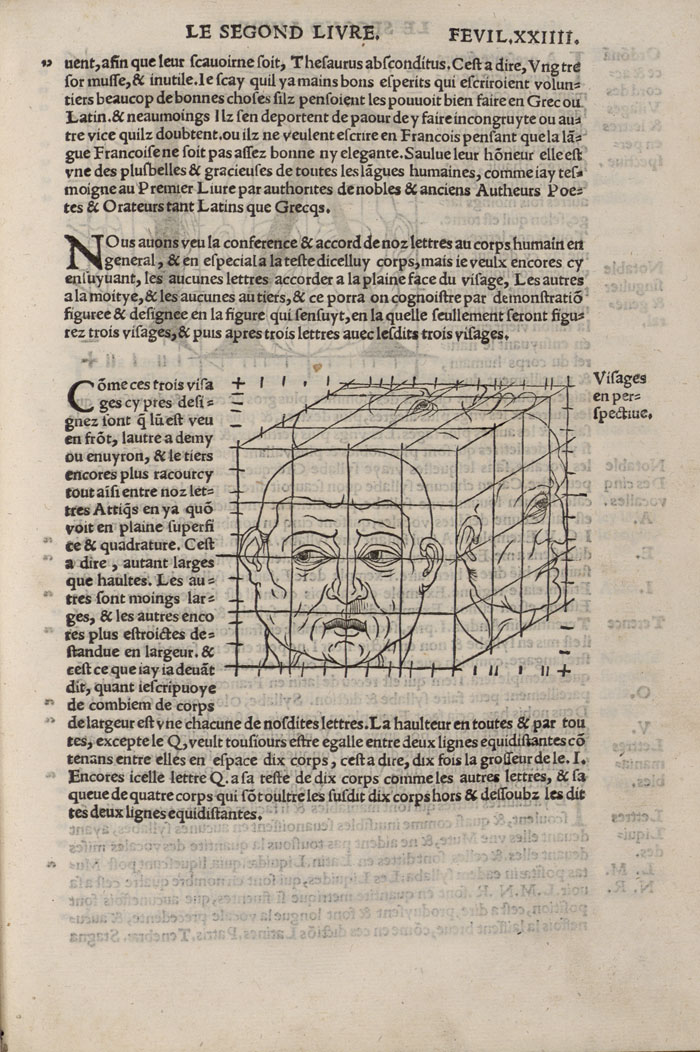 LE SEGOND LIVRE. FEVIL.XXIIII.
uent, afin que leur scauoir ne soit, Thesaurus absconditus. Cest a dire, Vng tre
sor musse, & inutile. Ie scay quil ya mains bons esperits qui escriroient volun=
tiers beaucop de bonnes choses silz pensoient les pouuoit bien faire en Grec ou
Latin. & neaumoings Ilz sen deportent de paour de y faire incongruyte ou au=
tre vice quilz doubtent. ou ilz ne veulent escrire en Francois pensant que la lã=
gue Francoise ne soit pas assez bonne ny elegante. Saulue leur hõneur elle est
vne des plusbelles & gracieuses de toutes les lãgues humaines, comme iay tes=
moigne au Premier Liure par authorites de nobles & anciens Autheurs Poe=
tes & Orateurs tant Latins que Grecqs.
NOus auons veu la conference & accord de noz lettres au corps humain en
general, & en especial a la teste dicelluy corps, mais ie veulx encores cy
ensuyuant, les aucunes lettres accorder a la plaine face du visage, Les autres
a la moitye, & les aucunes au tiers, & ce porra on cognoistre par demonstratiõ
figuree & designee en la figure qui sensuyt, en la quelle seullement seront figu=
rez trois visages, & puis apres trois lettres auec lesdits trois visages.
Cõme ces trois visa
ges cy pres desi=
gnez sont q̃ lũ est veu
en frõt, lautre a demy
ou enuyron, & le tiers
encores plus racourcy
tout aĩsi entre noz let=
tres Attiq̃s en ya quõ
voit en plaine superfi
ce & quadrature. Cest
a dire, autant larges
que haultes. Les au=
tres sont moings lar=
ges, & les autres enco
res plus estroictes de=
standue en largeur. &
cest ce que iay ia deuãt
dit, quant iescripuoye
de combiem de corps
de largeur est vne chacune de nosdites lettres. La haulteur en toutes & par tou
tes, excepte le Q, veult tousiours estre egalle entre deux lignes equidistantes cõ
tenans entre elles en espace dix corps, cest a dire, dix fois la grosseur de le. I.
Encores icelle lettre Q. a sa teste de dix corps comme les autres lettres, & sa
queue de quatre corps qui sõt oultre les susdit dix corps hors & dessoubz les dit
tes deux lignes equidistantes.
Visages
en per=
spectiue.